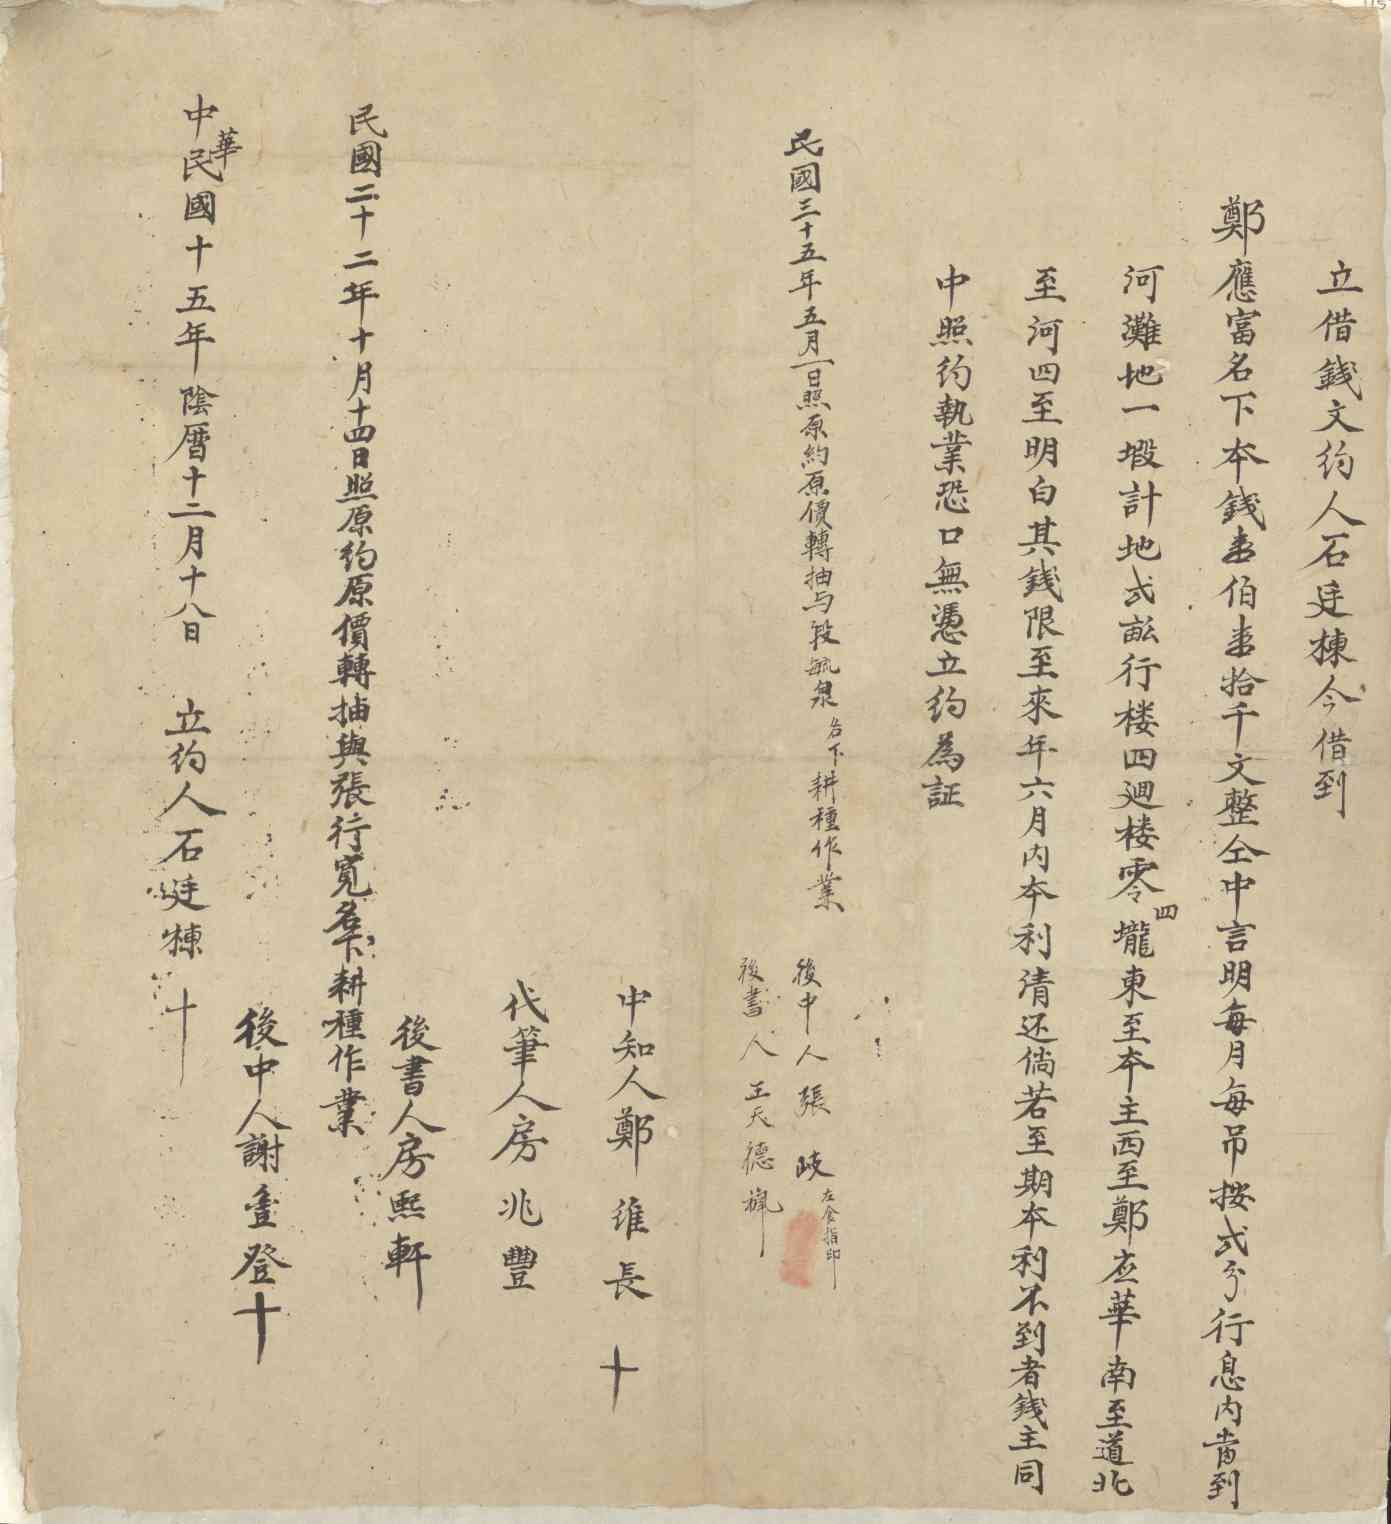 立借錢文約人石廷棟今借到
鄭應富名下本錢壹伯壹拾千文整仝中言明每月每吊按弍分行息内當到
河灘地一塅計地弍畆行楼四廻楼零四壠東至本主西至鄭应華南至道北
至河四至明白其錢限至來年六月内本利清还倘若至期本利不到者錢主同
中照約執業恐口無憑立約為証
民國三十五年五月一日照原約原價轉抽与段毓泉名下耕種作業
後中人張岐左食指印
後書人王天德
中知人鄭維長十
代筆人房兆豐
後書人房熙軒
民國二十二年十月十四日照原約原價轉抽與張行寬名下耕種作業
後中人謝登十
中華民國十五年陰曆十二月十八日 立約人石廷棟十